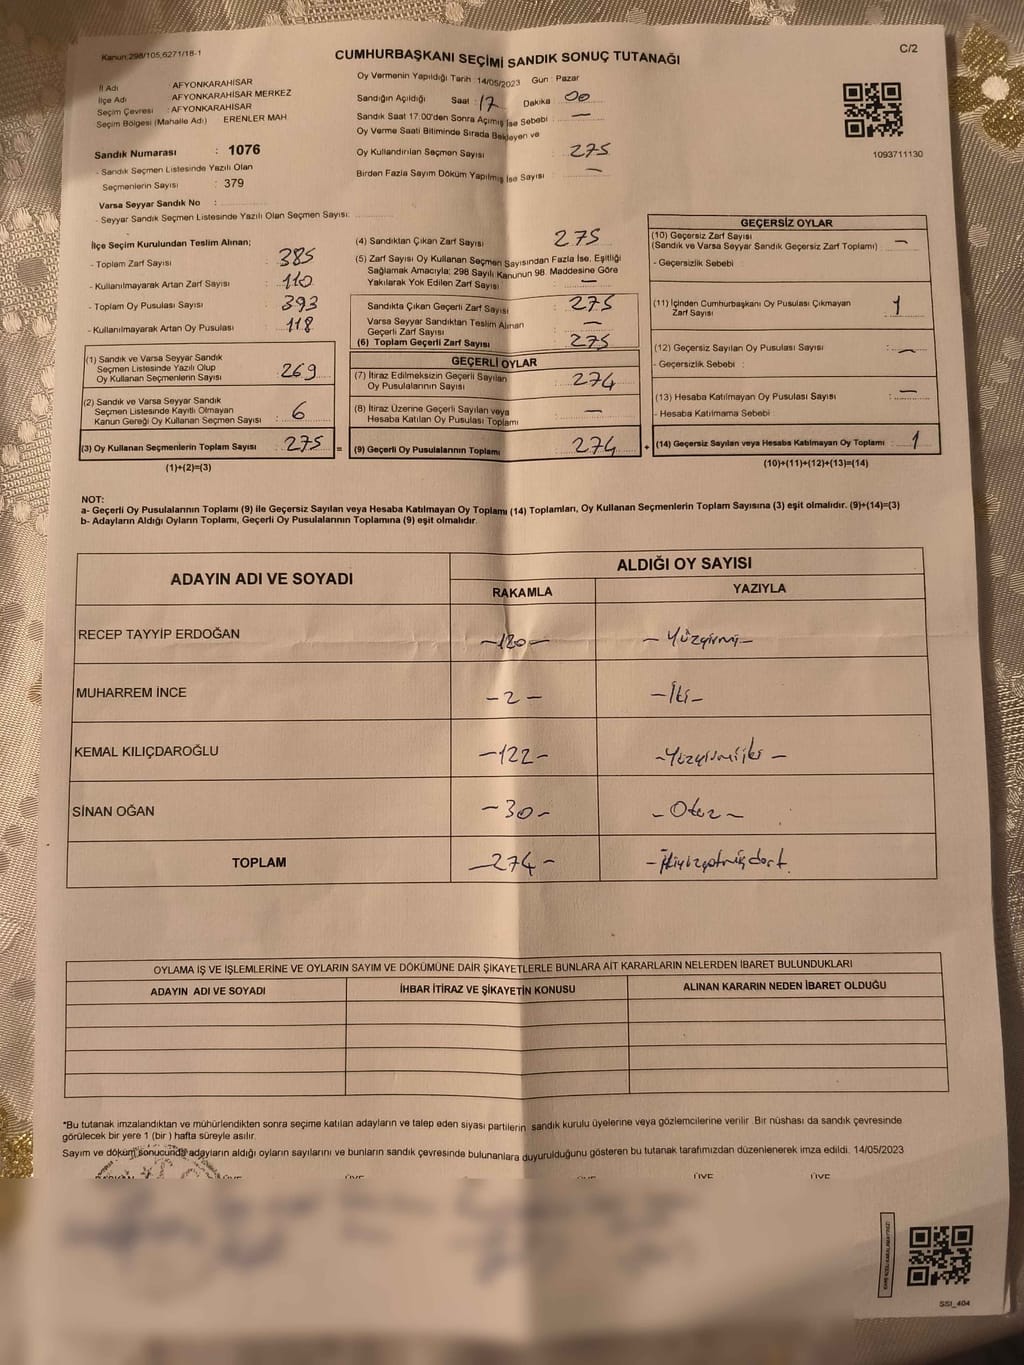 Kanun:298/105,6271/18-1
C/2
CUMHURBAŞKANI SEÇİMİ SANDIK SONUÇ TUTANAĞI
İl Adı : AFYONKARAHİSAR
İlçe Adı : AFYONKARAHİSAR MERKEZ
Seçim Çevresi : AFYONKARAHİSAR
Seçim Bölgesi (Mahalle Adı) ERENLER MAH
Sandık Numarası : 1076
- Sandık Seçmen Listesinde Yazılı Olan
Seçmenlerin Sayısı : 379
Varsa Seyyar Sandık No :
- Seyyar Sandık Seçmen Listesinde Yazılı Olan Seçmen Sayısı:
Oy Vermenin Yapıldığı Tarih : 14/05/2023 Gün : Pazar
Sandığın Açıldığı Saat : 17 Dakika 00
Sandık Saat 17:00'den Sonra Açımış İse Sebebi : —
Oy Verme Saati Bitiminde Sırada Bekleyen ve
Oy Kullandırılan Seçmen Sayısı : 275
Birden Fazla Sayım Döküm Yapılmış İse Sayısı : —
1093711130
İlçe Seçim Kurulundan Teslim Alınan;
- Toplam Zarf Sayısı : 385
- Kullanılmayarak Artan Zarf Sayısı : 110
- Toplam Oy Pusulası Sayısı : 393
- Kullanılmayarak Artan Oy Pusulası : 118
(1) Sandık ve Varsa Seyyar Sandık
Seçmen Listesinde Yazılı Olup
Oy Kullanan Seçmenlerin Sayısı : 269
(2) Sandık ve Varsa Seyyar Sandık
Seçmen Listesinde Kayıtlı Olmayan
Kanun Gereği Oy Kullanan Seçmen Sayısı : 6
(3) Oy Kullanan Seçmenlerin Toplam Sayısı : 275 =
(1)+(2)=(3)
(4) Sandıktan Çıkan Zarf Sayısı : 275
(5) Zarf Sayısı Oy Kullanan Seçmen Sayısından Fazla İse, Eşitliği
Sağlamak Amacıyla; 298 Sayılı Kanunun 98. Maddesine Göre
Yakılarak Yok Edilen Zarf Sayısı : —
Sandıkta Çıkan Geçerli Zarf Sayısı : 275
Varsa Seyyar Sandıktan Teslim Alınan
Geçerli Zarf Sayısı : —
(6) Toplam Geçerli Zarf Sayısı : 275
GEÇERLİ OYLAR
(7) İtiraz Edilmeksizin Geçerli Sayılan
Oy Pusulalarının Sayısı : 274
(8) İtiraz Üzerine Geçerli Sayılan veya
Hesaba Katılan Oy Pusulası Toplamı : —
(9) Geçerli Oy Pusulalarının Toplamı : 274 +
GEÇERSİZ OYLAR
(10) Geçersiz Zarf Sayısı
(Sandık ve Varsa Seyyar Sandık Geçersiz Zarf Toplamı) : —
- Geçersizlik Sebebi :
(11) İçinden Cumhurbaşkanı Oy Pusulası Çıkmayan
Zarf Sayısı : 1
(12) Geçersiz Sayılan Oy Pusulası Sayısı : —
- Geçersizlik Sebebi :
(13) Hesaba Katılmayan Oy Pusulası Sayısı : —
- Hesaba Katılmama Sebebi :
(14) Geçersiz Sayılan veya Hesaba Katılmayan Oy Toplamı : 1
(10)+(11)+(12)+(13)=(14)
NOT:
a- Geçerli Oy Pusulalarının Toplamı (9) ile Geçersiz Sayılan veya Hesaba Katılmayan Oy Toplamı (14) Toplamları, Oy Kullanan Seçmenlerin Toplam Sayısına (3) eşit olmalıdır. (9)+(14)=(3)
b- Adayların Aldığı Oyların Toplamı, Geçerli Oy Pusulalarının Toplamına (9) eşit olmalıdır.
ADAYIN ADI VE SOYADI ALDIĞI OY SAYISI
RAKAMLA YAZIYLA
RECEP TAYYİP ERDOĞAN -120- - Yüzyirmi -
MUHARREM İNCE -2- - İki -
KEMAL KILIÇDAROĞLU -122- - Yüzyirmiiki -
SİNAN OĞAN -30- - Otuz -
TOPLAM -274- - İkiyüzyetmişdört.
OYLAMA İŞ VE İŞLEMLERİNE VE OYLARIN SAYIM VE DÖKÜMÜNE DAİR ŞİKAYETLERLE BUNLARA AİT KARARLARIN NELERDEN İBARET BULUNDUKLARI
ADAYIN ADI VE SOYADI İHBAR İTİRAZ VE ŞİKAYETİN KONUSU ALINAN KARARIN NEDEN İBARET OLDUĞU
*Bu tutanak imzalandıktan ve mühürlendikten sonra seçime katılan adayların ve talep eden siyasi partilerin sandık kurulu üyelerine veya gözlemcilerine verilir. Bir nüshası da sandık çevresinde
görülecek bir yere 1 (bir) hafta süreyle asılır.
Sayım ve döküm sonucunda adayların aldığı oyların sayılarını ve bunların sandık çevresinde bulunanlara duyurulduğunu gösteren bu tutanak tarafımızdan düzenlenerek imza edildi. 14/05/2023
BAŞKAN ÜYE ÜYE ÜYE ÜYE ÜYE
SSI_404